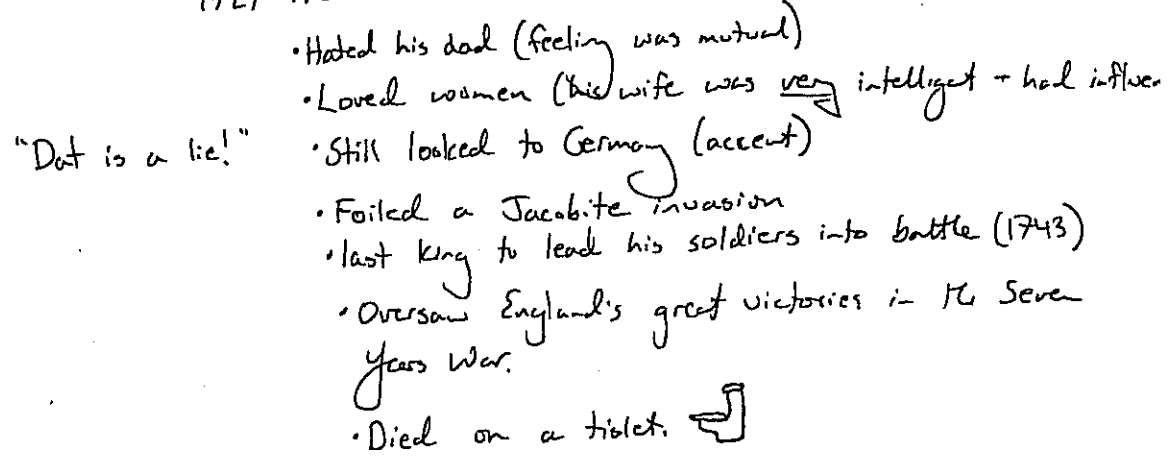 • Hated his dad (feeling was mutual)
• Loved women (his wife was very intelligent + had influen
"Dat is a lie!" • Still looked to Germany (accent)
• Foiled a Jacobite invasion
• last king to lead his soldiers into battle (1743)
• Oversaw England's great victories in the Seven
Years War.
• Died on a tiolet.